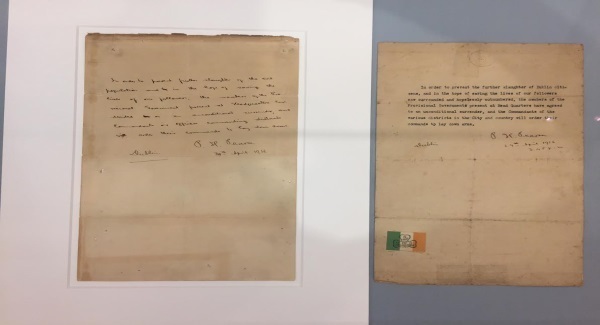 In order to prevent further slaughter of the civil
population and in the hope of saving the
lives of our followers, the members of the Pro-
visional Government present at Headquarters have
decided on an unconditional surrender, and
Commandants or officers commanding districts
will order their commands to lay down arms.
P. H. Pearse
Dublin
30th April 1916
In order to prevent the further slaughter of Dublin citi-
zens, and in the hope of saving the lives of our followers
now surrounded and hopelessly outnumbered, the members of the
Provisional Government present at Head Quarters have agreed
to an unconditional surrender, and the Commandants of the
various districts in the City and Country will order their
commands to lay down arms.
P. H. Pearse
Dublin
April 1916